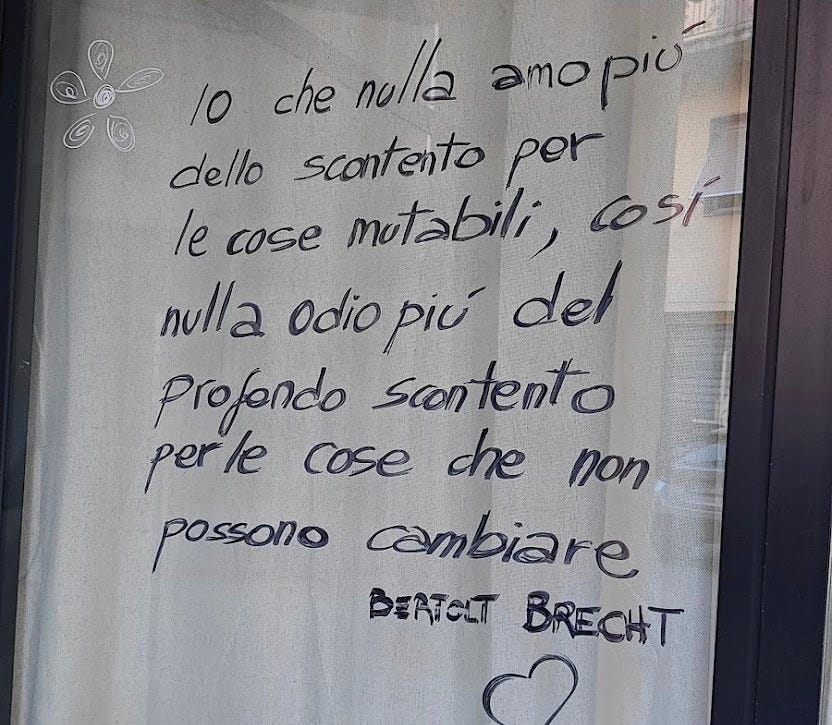 Io che nulla amo piú
dello scontento per
le cose mutabili, cosí
nulla odio piú del
profondo scontento
per le cose che non
possono cambiare
BERTOLT BRECHT